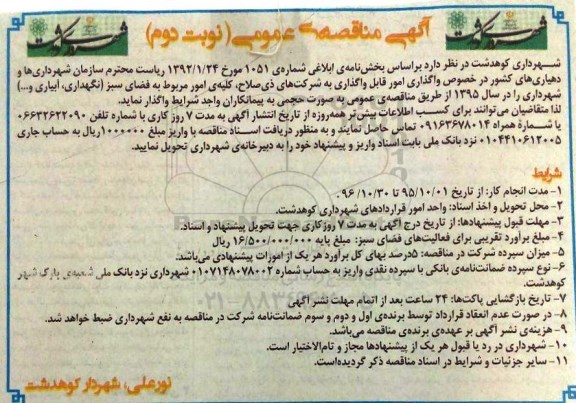 آگهی مناقصه‌ی عمومی( نوبت دوم)
شهرداری کوهدشت
شهرداری کوهدشت
شهرداری کوهدشت در نظر دارد براساس بخش‌نامه‌ی ابلاغی شماره‌ی ۱۰۵۱ مورخ ۱۳۹۲/۱/۲۴ ریاست محترم سازمان شهرداری‌ها و
دهیاری‌های کشور در خصوص واگذاری امور قابل واگذاری به شرکت‌های ذی‌صلاح، کلیه‌ی امور مربوط به فضای سبز (نگهداری، آبیاری و...)
شهرداری را در سال ۱۳۹۵ از طریق مناقصه‌ی عمومی به صورت حجمی به پیمانکاران واجد شرایط واگذار نماید.
لذا متقاضیان می‌توانند برای کسب اطلاعات بیش‌تر همه‌روزه از تاریخ انتشار آگهی به مدت ۷ روز کاری با شماره تلفن ۰۶۶۳۲۶۲۲۰۹۰
یا شماره همراه ۰۹۱۶۳۶۷۸۰۱۴ تماس حاصل نمایند و به منظور دریافت اسناد مناقصه با واریز مبلغ ۱۰۰۰۰۰۰ریال به حساب جاری
۰۱۰۴۴۱۰۶۱۲۰۰۵ نزد بانک ملی بابت اسناد واریز و پیشنهاد خود را به دبیرخانه‌ی شهرداری تحویل نمایید.
شرایط
۱- مدت انجام کار: از تاریخ ۹۵/۱۰/۰۱ تا ۹۶/۱۰/۳۰ .
۲- محل تحویل و اخذ اسناد: واحد امور قراردادهای شهرداری کوهدشت.
۳- مهلت قبول پیشنهادها: از تاریخ درج آگهی به مدت ۷ روزکاری جهت تحویل پیشنهاد و اسناد.
۴- مبلغ برآورد تقریبی برای فعالیت‌های فضای سبز: مبلغ پایه ۱۶/۵۰۰/۰۰۰/۰۰۰ ریال
۵- میزان سپرده شرکت در مناقصه: ۵درصد بهای کل برآورد هر یک از امورات پیشنهادی می‌باشد.
۶- نوع سپرده ضمانت‌نامه‌ی بانکی یا سپرده نقدی واریز به حساب شماره ۰۱۰۷۱۴۸۰۷۸۰۰۲ شهرداری نزد بانک ملی شعبه‌ی پارک شهر
کوهدشت.
۷- تاریخ بازگشایی پاکت‌ها: ۲۴ ساعت بعد از اتمام مهلت نشر آگهی
۸- در صورت عدم انعقاد قرارداد توسط برنده‌ی اول و دوم و سوم ضمانت‌نامه شرکت در مناقصه به نفع شهرداری ضبط خواهد شد.
۹- هزینه‌ی نشر آگهی بر عهده‌ی برنده‌ی مناقصه می‌باشد.
۱۰- شهرداری در رد یا قبول هر یک از پیشنهادها مجاز و تام‌الاختیار است.
۱۱- سایر جزئیات و شرایط در اسناد مناقصه ذکر گردیده‌است.
نورعلی، شهردار کوهدشت